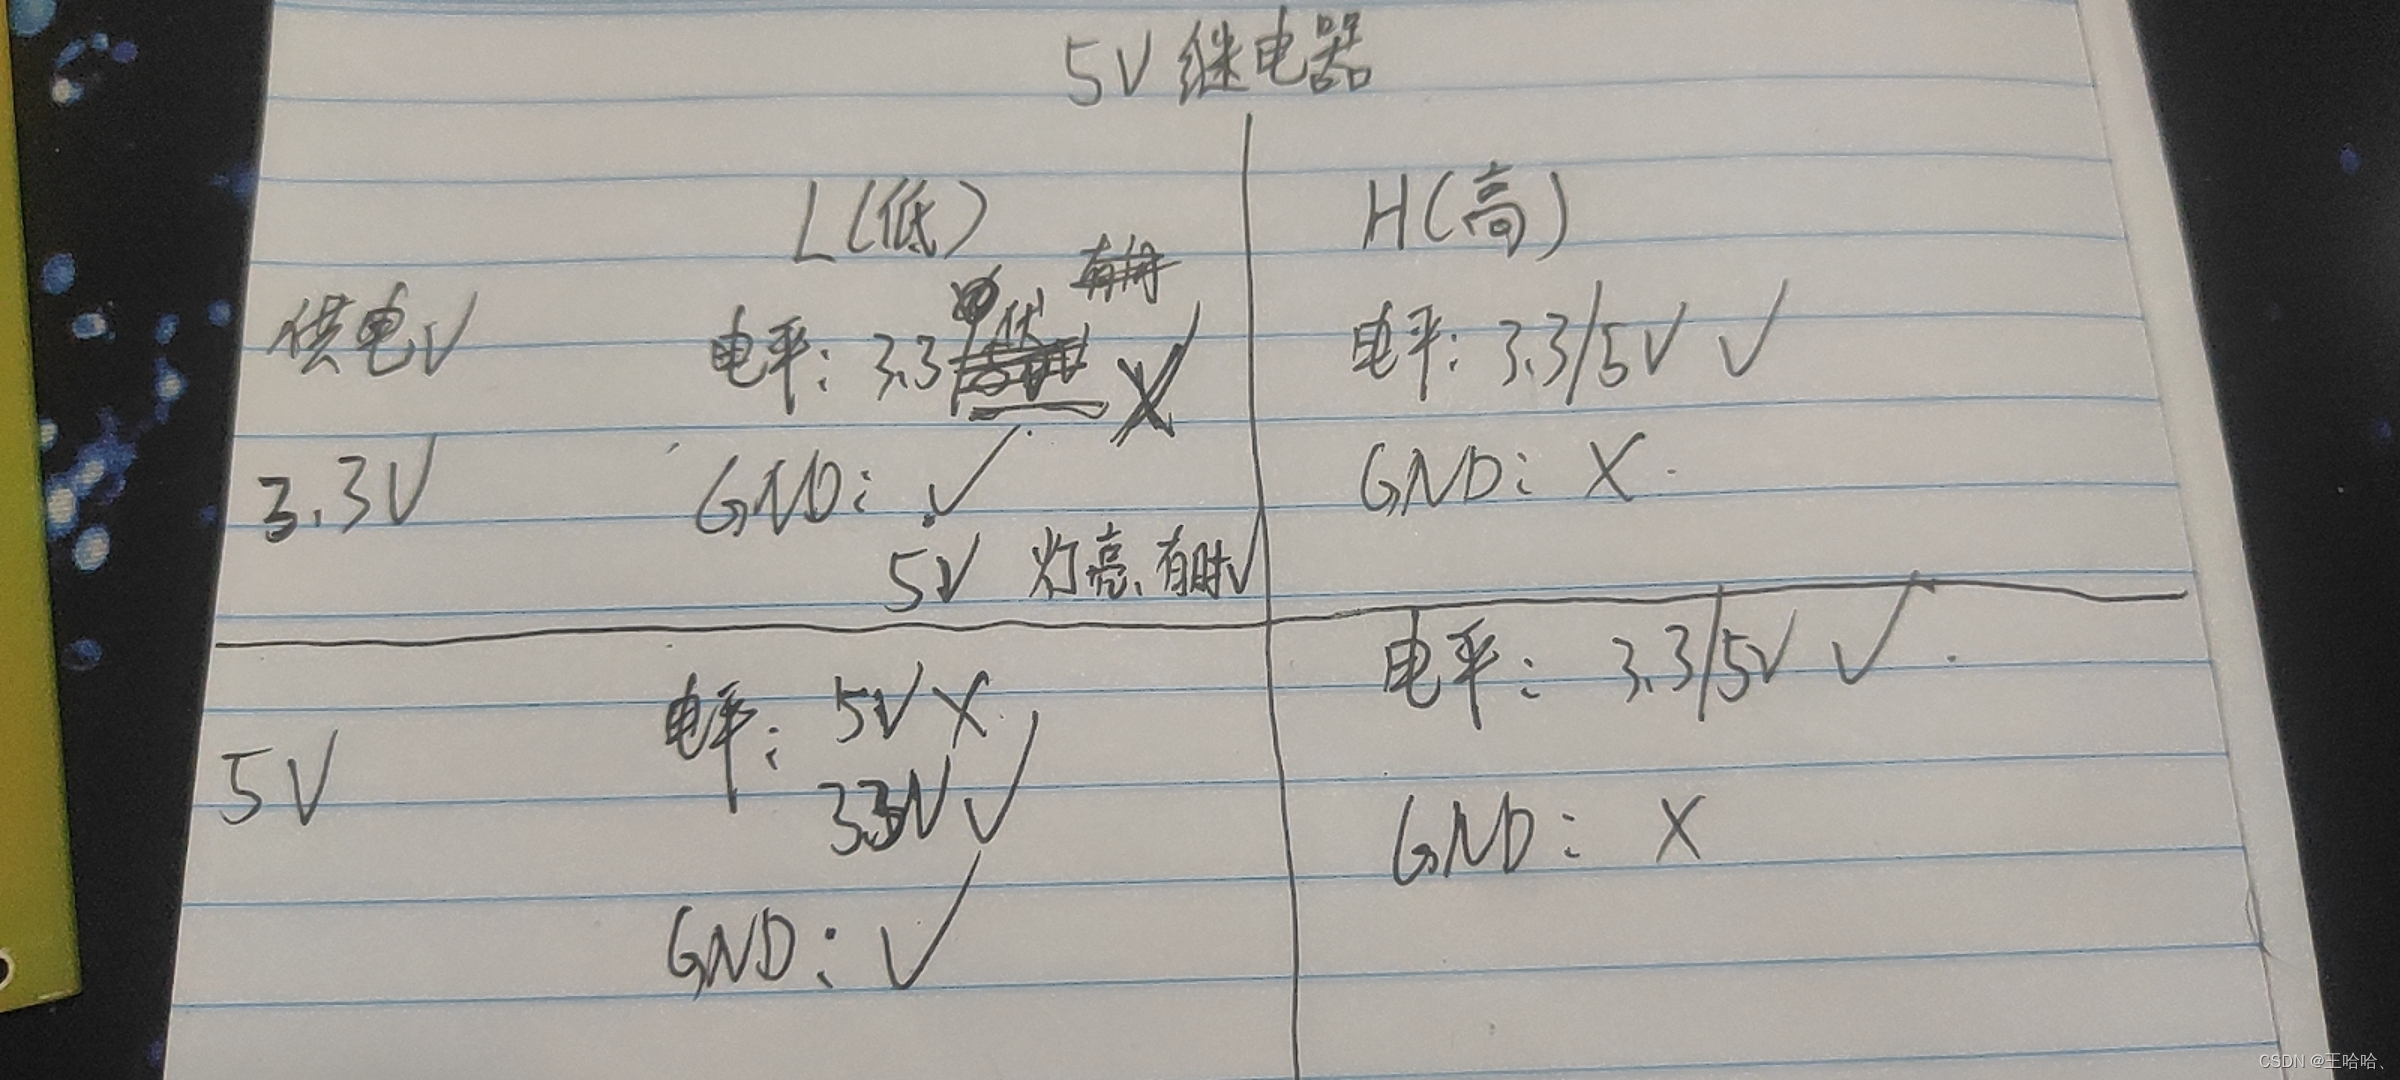 5V 继电器
L(低)
H(高)
供电V
电平: 3.3 X
电平: 3.3/5V ✓
3.3V
GND: ✓
GND: X
5V 灯亮、有时✓
电平: 5V X
3.3V ✓
电平: 3.3/5V ✓
5V
GND: ✓
GND: X
CSDN @王哈哈、